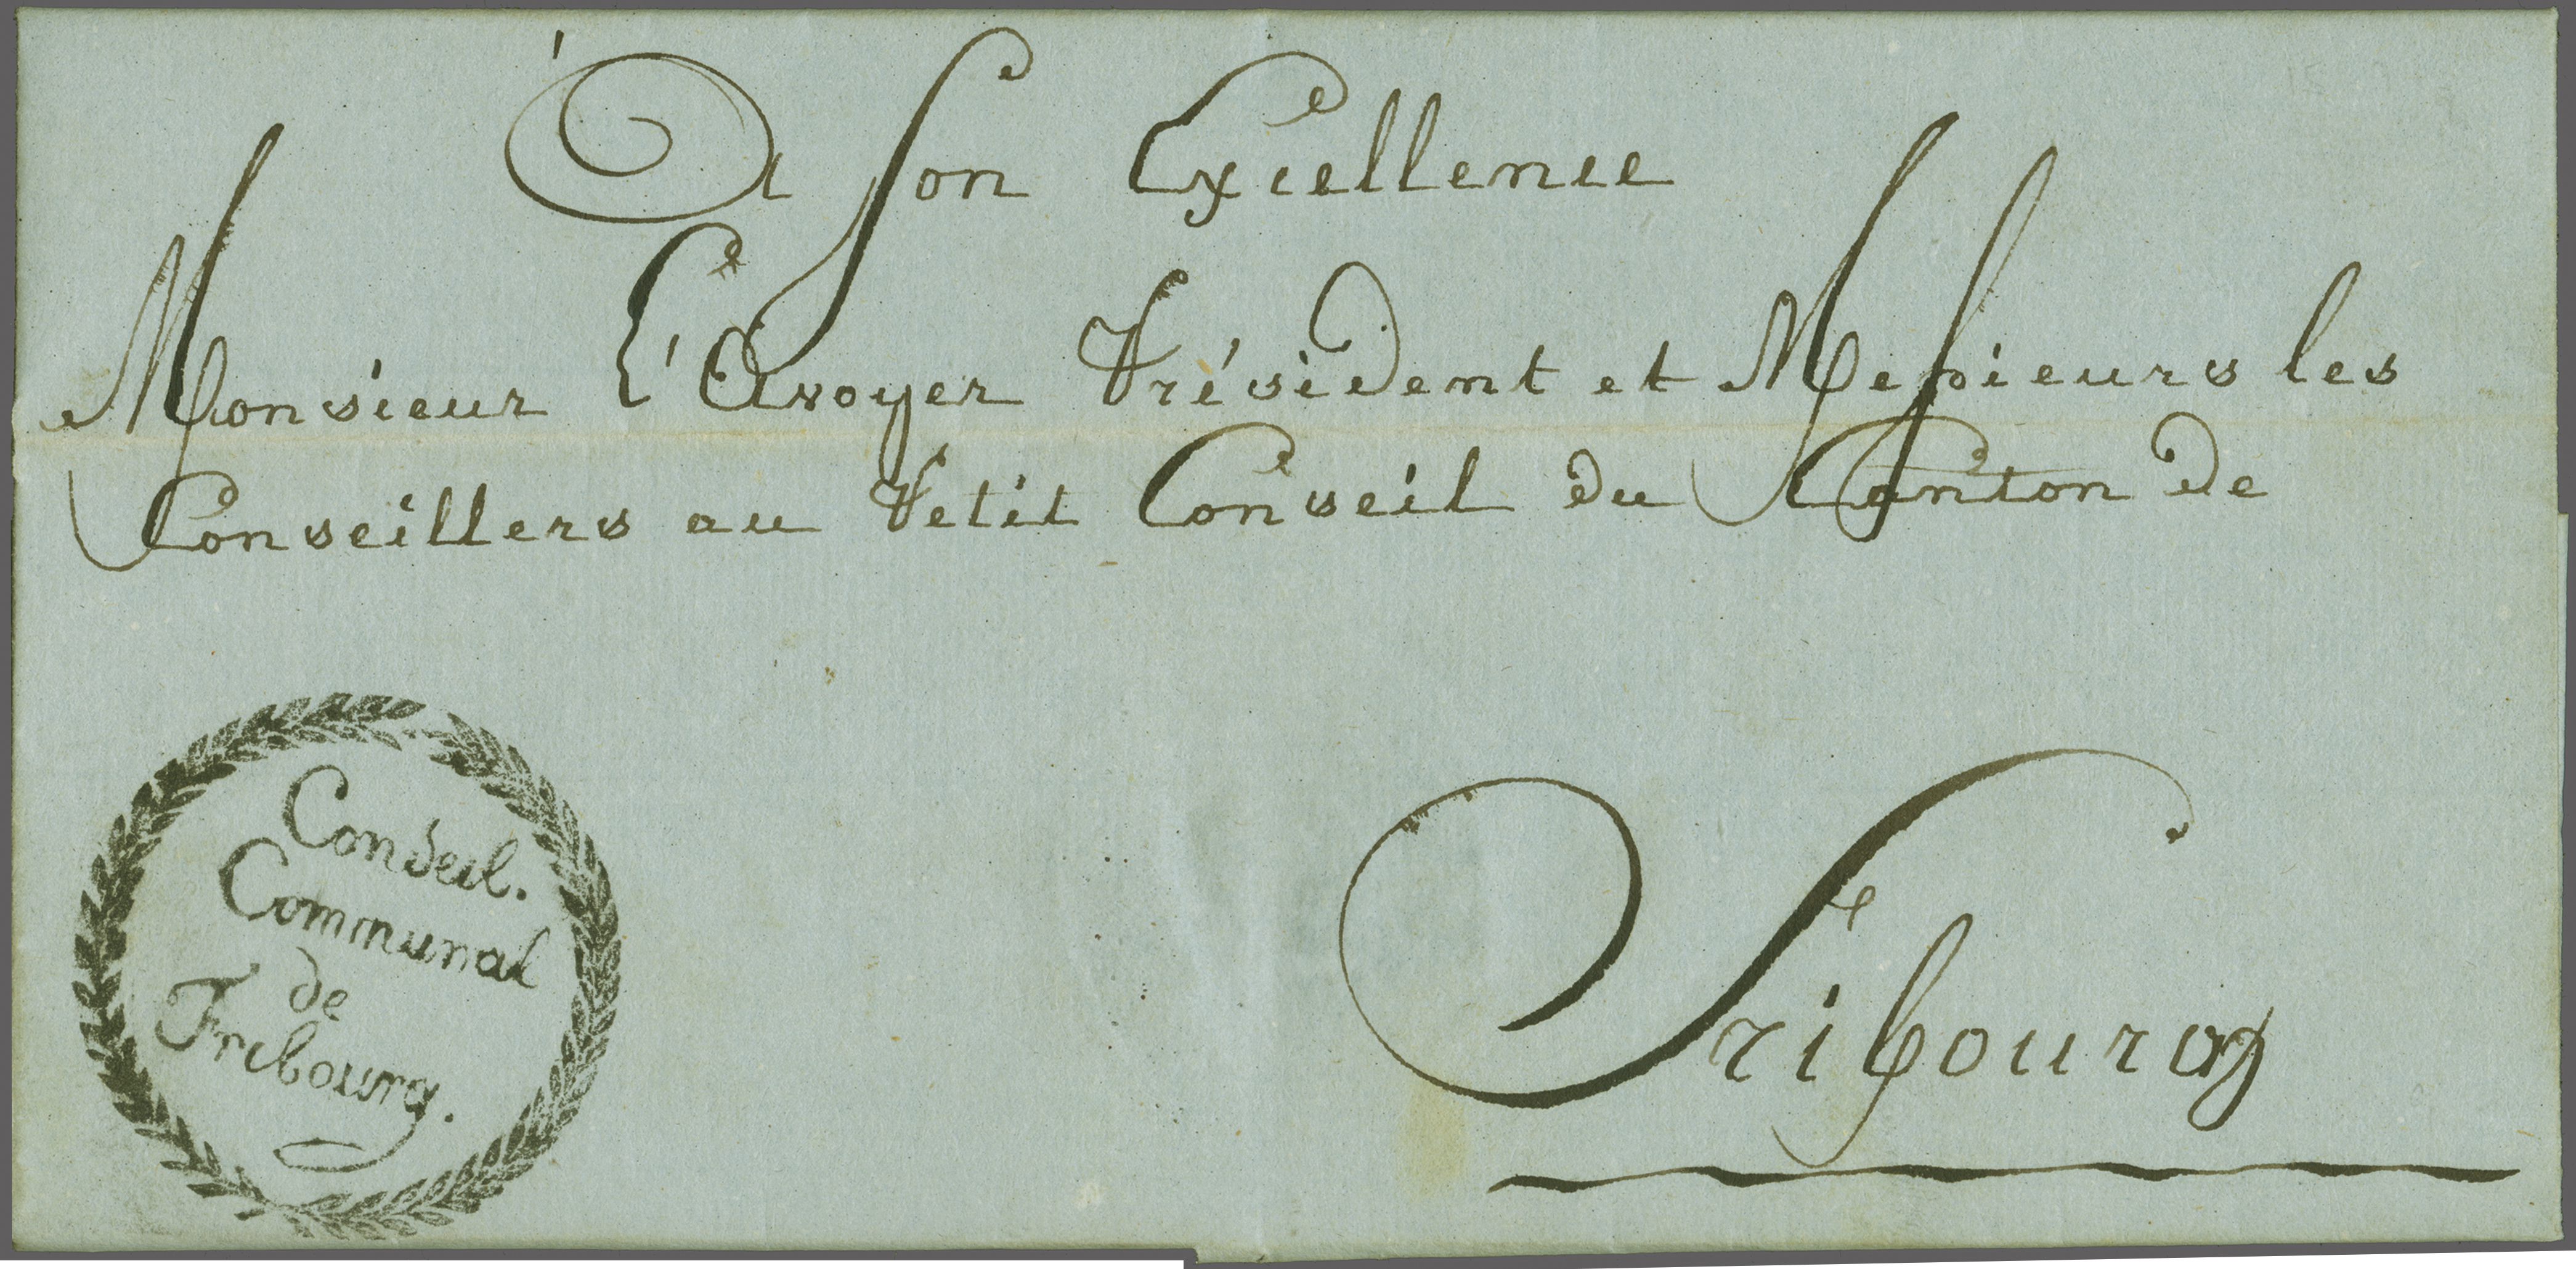 À Son Excellence
Monsieur L'Avoyer Président et Messieurs les
Conseillers au Petit Conseil du Canton de
Fribourg
Conseil.
Communal
de
Fribourg.